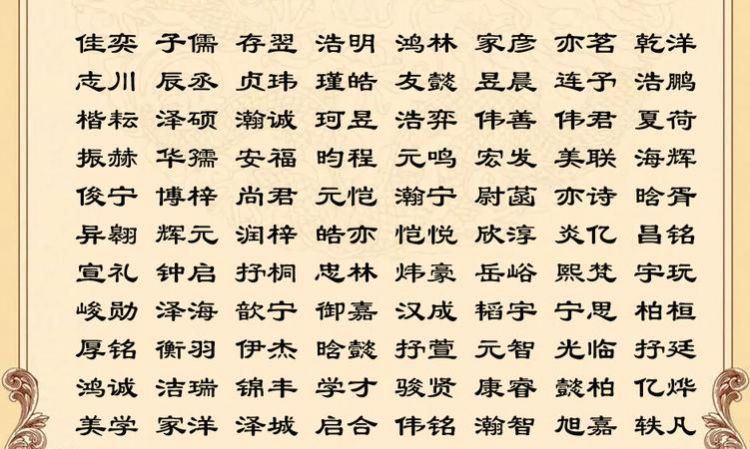 佳奕 子儒 存翌 浩明 鸿林 家彦 亦茗 乾洋
志川 辰丞 贞玮 瑾皓 友懿 昱晨 连予 浩鹏
楷耘 泽硕 瀚诚 珂昱 浩弈 伟善 伟君 夏荷
振赫 华孺 安福 昀程 元鸣 宏发 美联 海辉
俊宁 博梓 尚君 元恺 瀚宁 尉菡 亦诗 晗胥
异翱 辉元 润梓 皓亦 恺悦 欣淳 炎亿 昌铭
宣礼 钟启 抒桐 忠林 炜豪 岳峪 熙梵 宇玩
峻勋 泽海 歆宁 御嘉 汉成 韬宇 宁思 柏桓
厚铭 衡羽 伊杰 晗懿 抒萱 元智 光临 抒廷
鸿诚 洁瑞 锦丰 学才 骏贤 康睿 懿柏 亿烨
美学 家洋 泽城 启合 伟铭 瀚智 旭嘉 轶凡